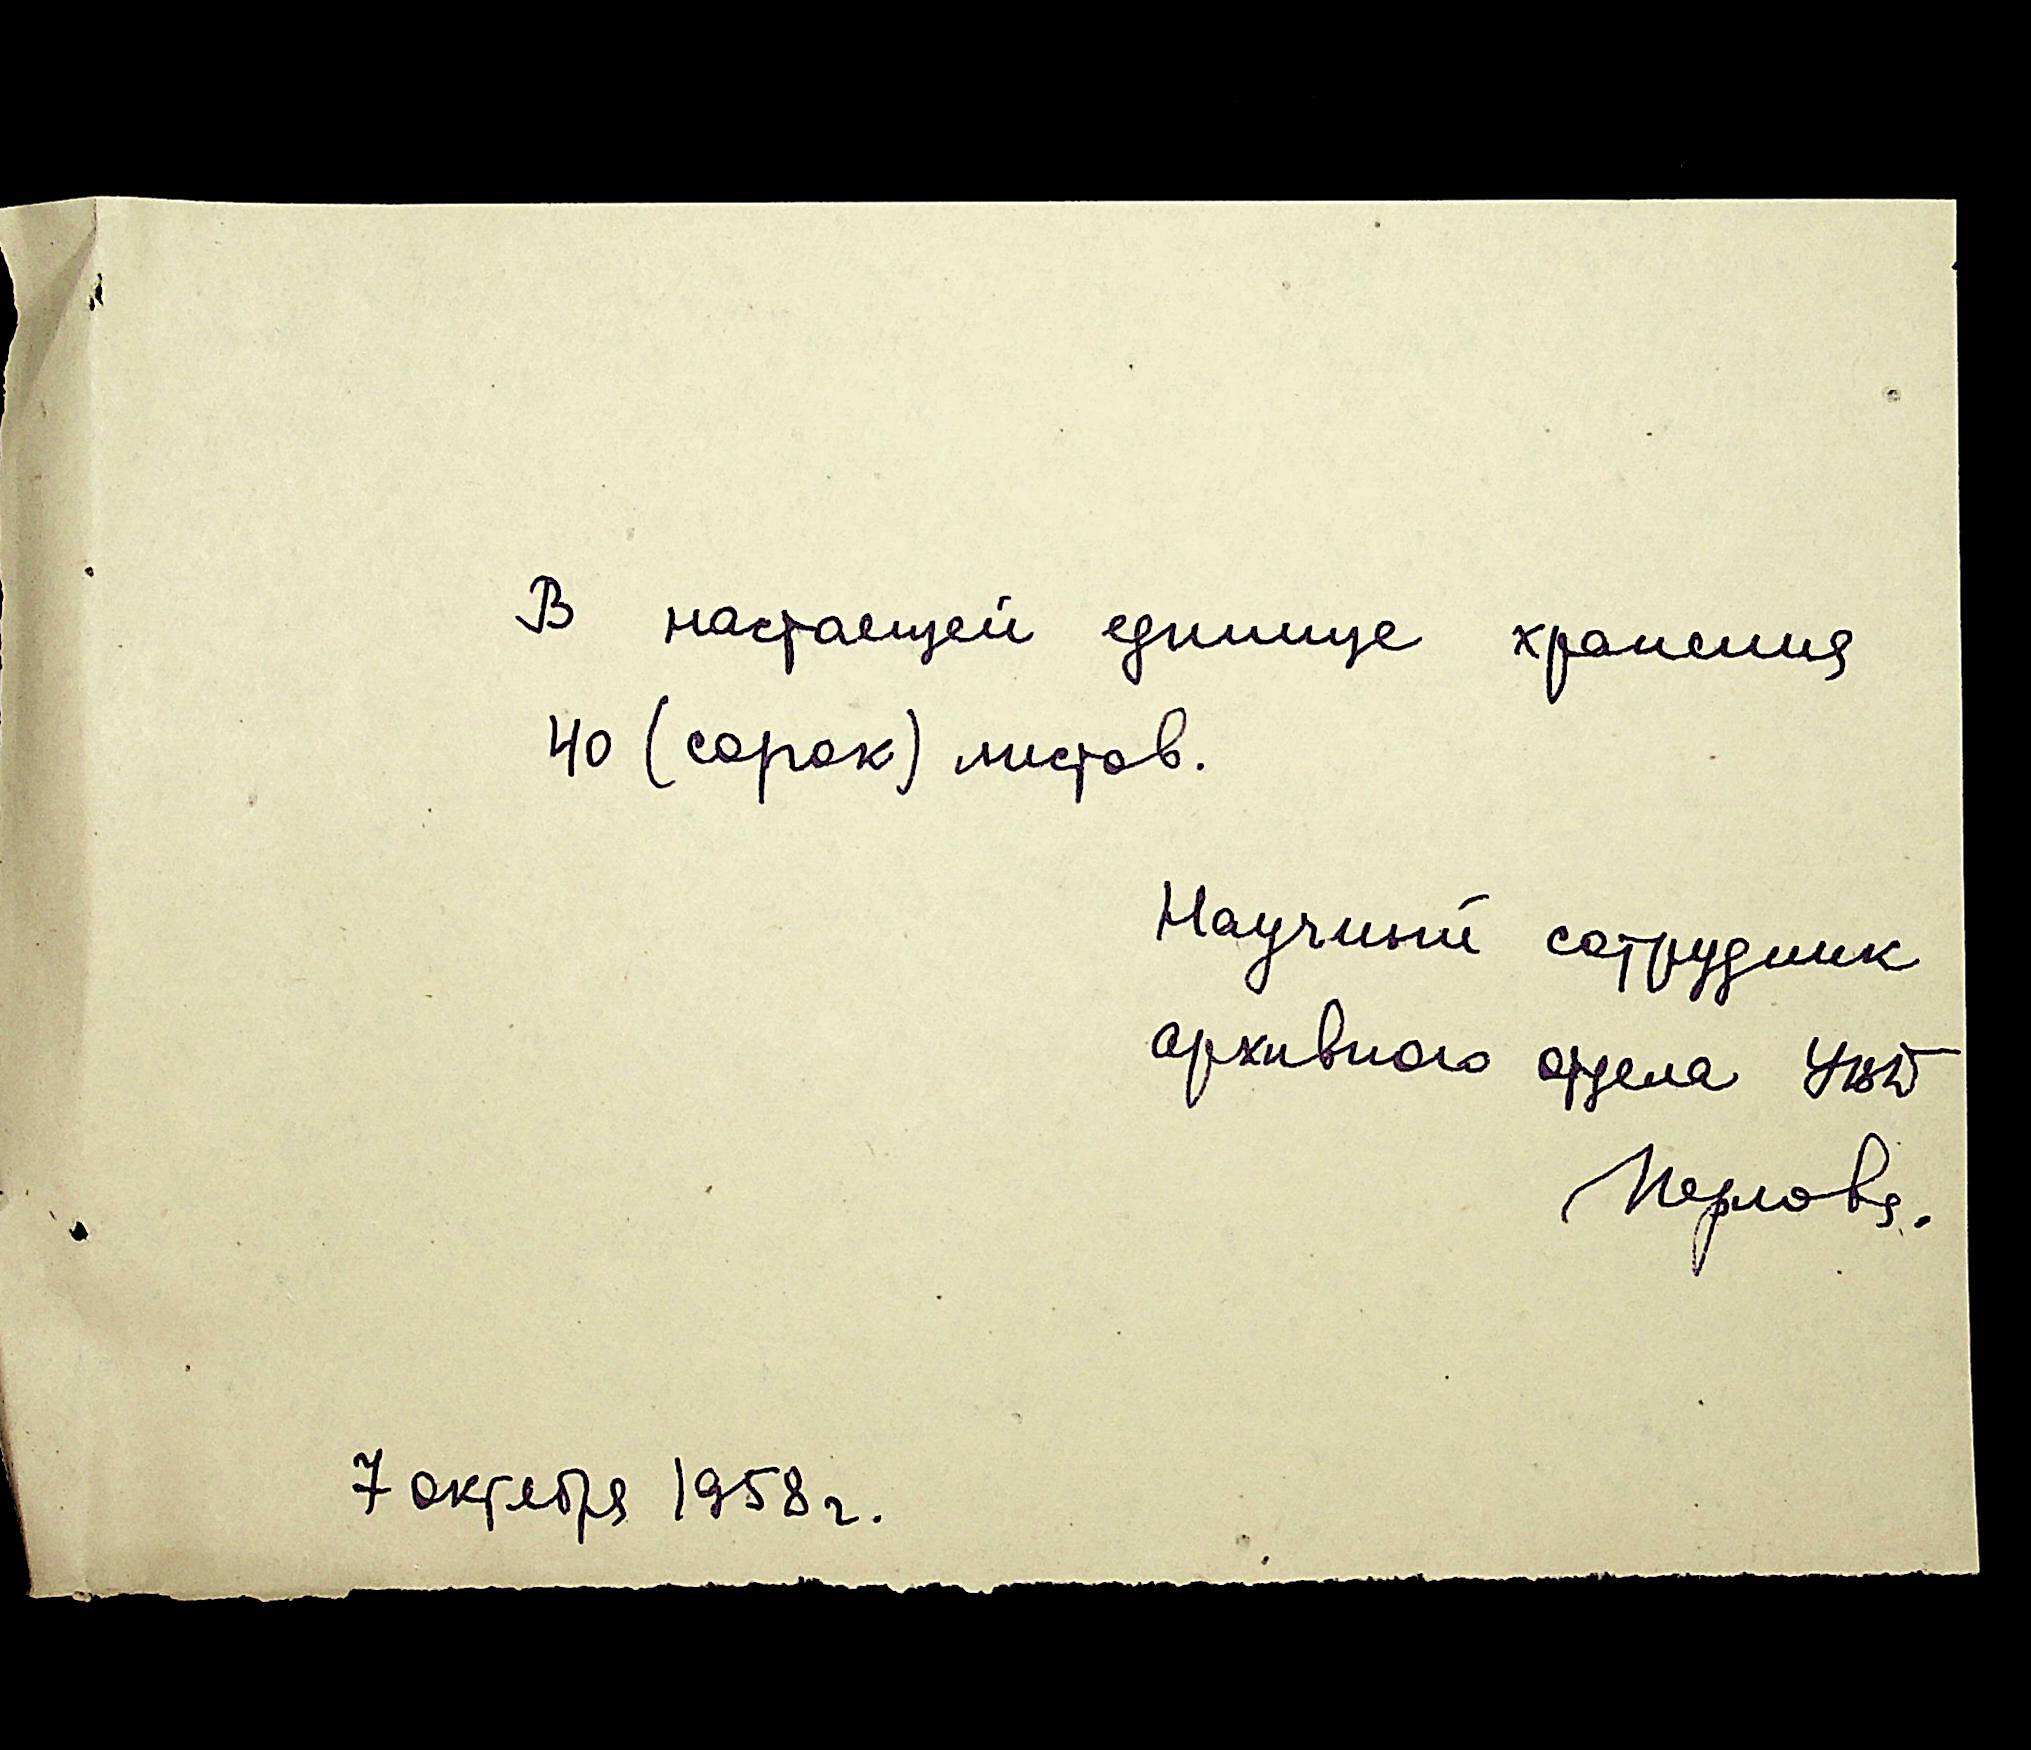 В настаещей единице хранения
40 (сорок) листов.
Научный сотрудник
архивного отдела УВД
Перлова.
7 октября 1958 г.